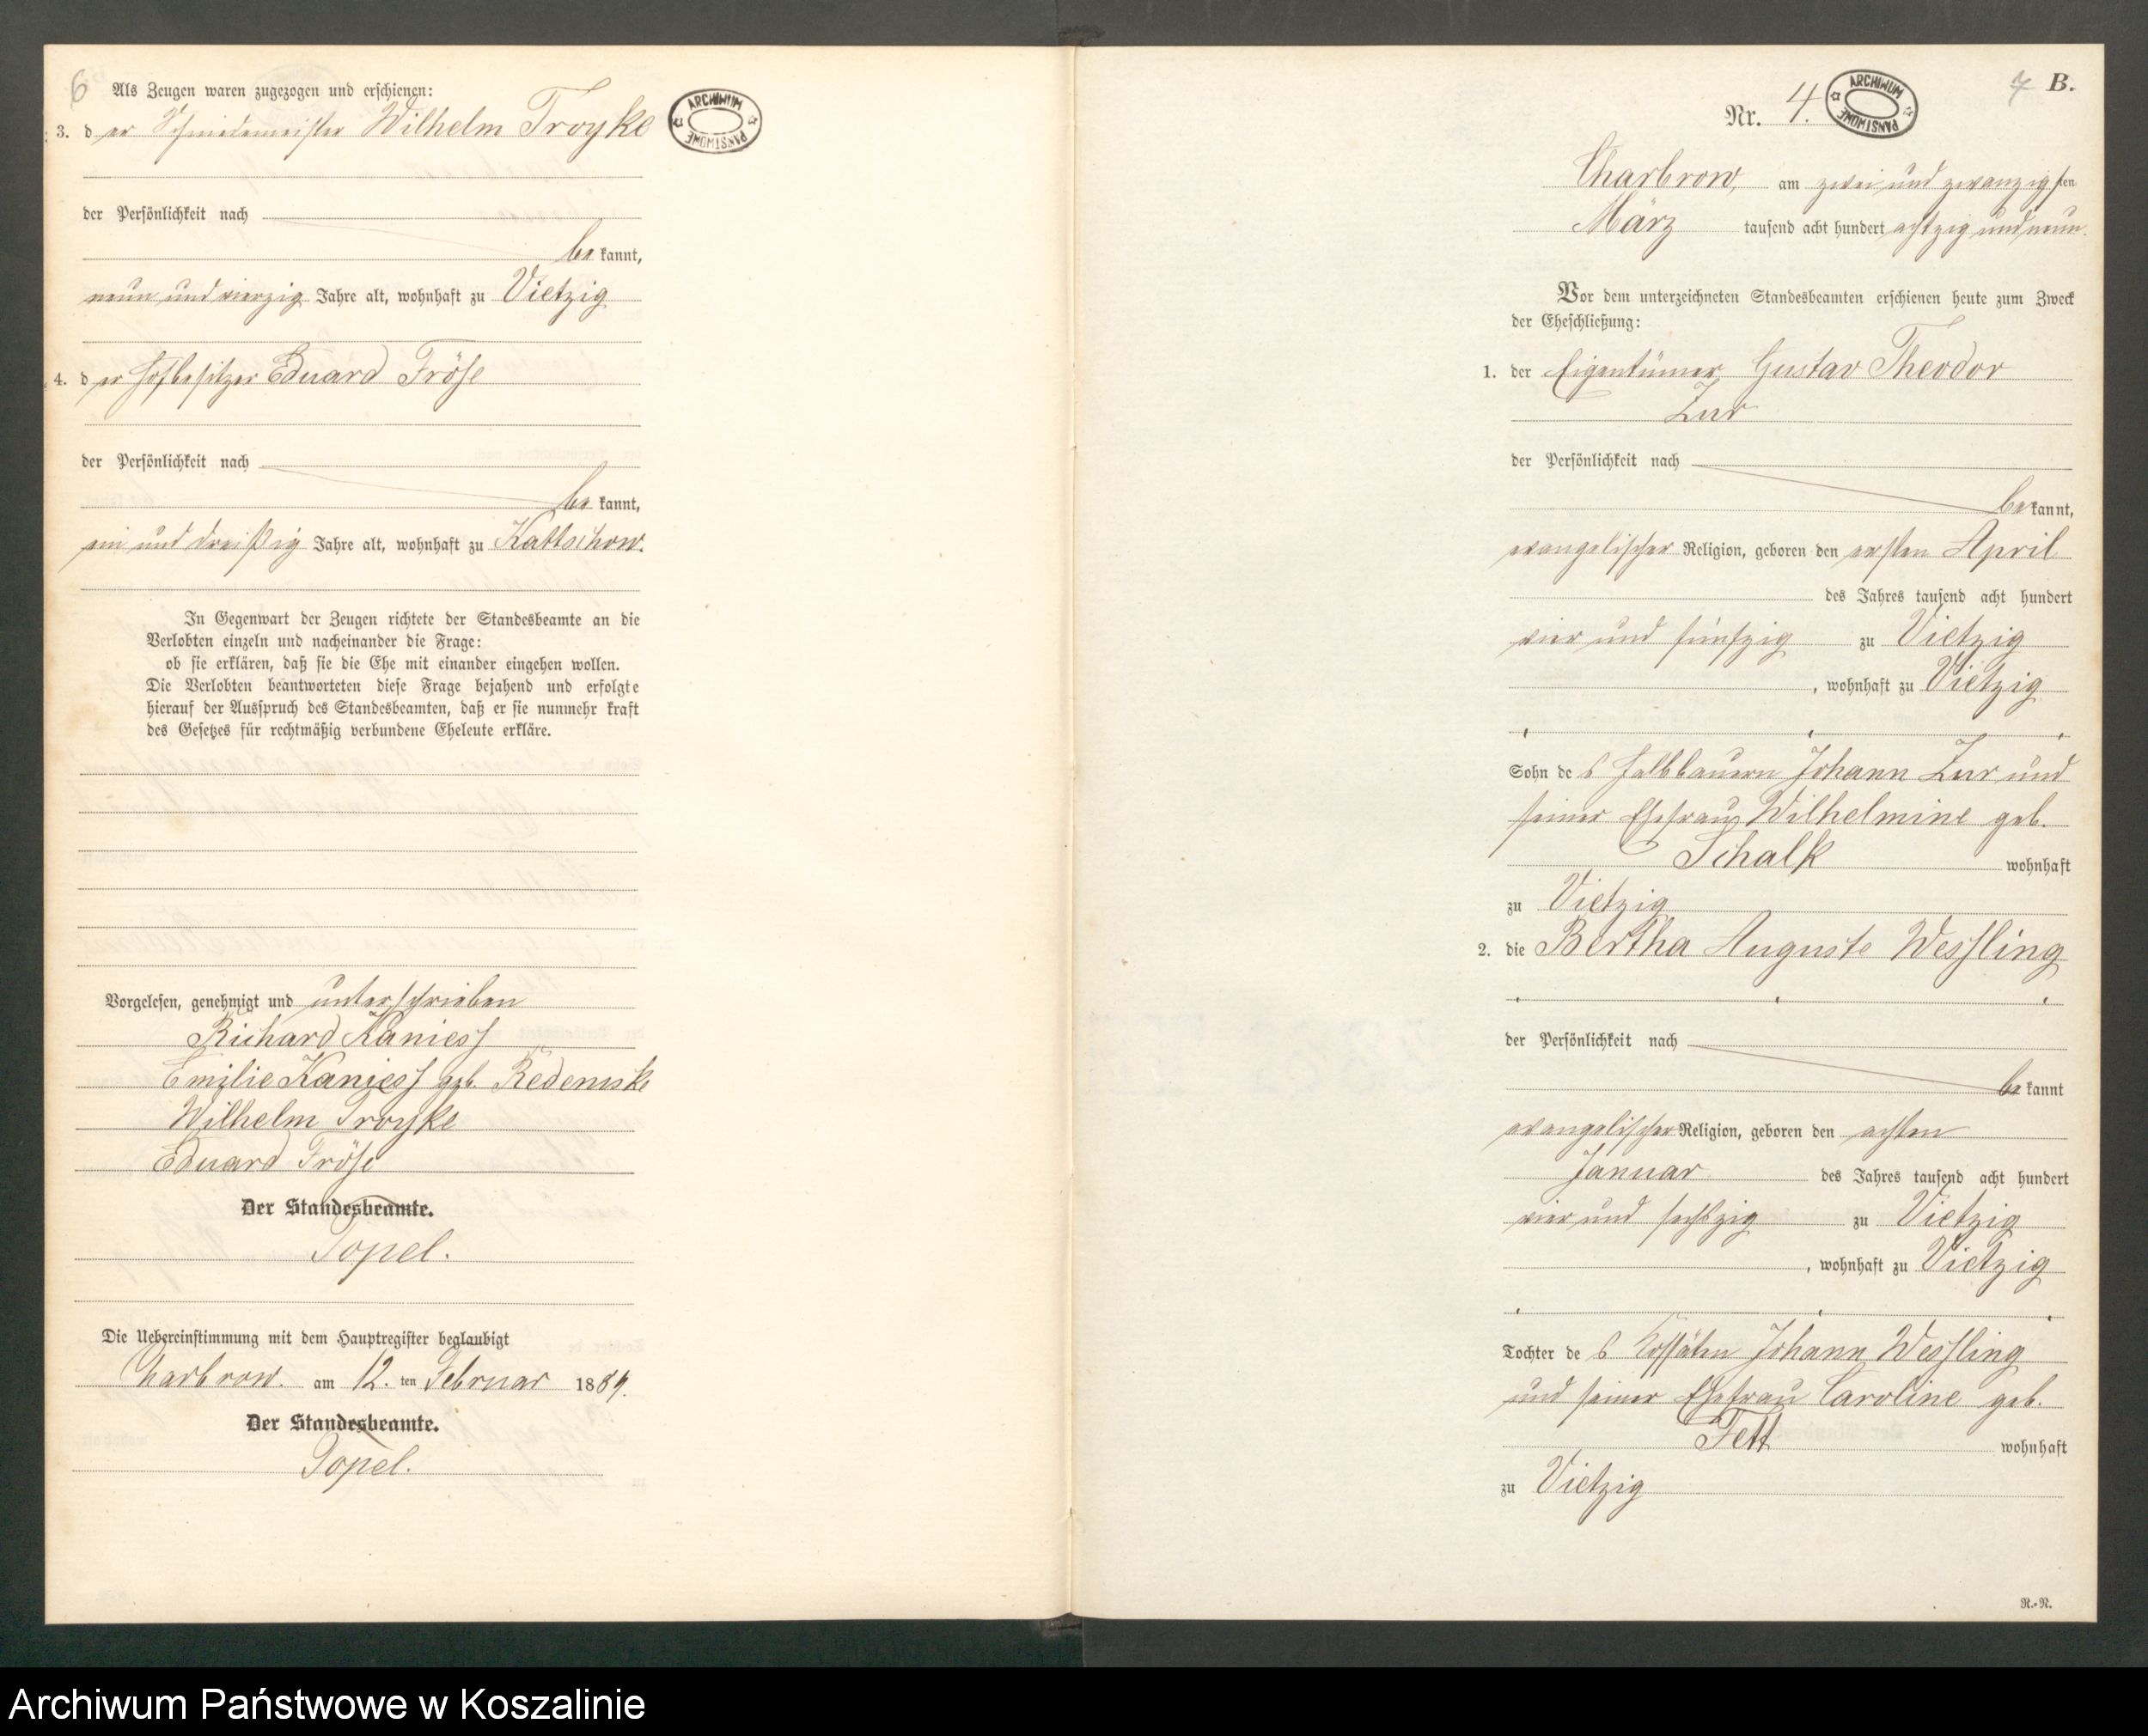 6
Als Zeugen waren zugezogen und erschienen:
3. der Schmiedemeister Wilhelm Troyke
ARCHIWUM PAŃSTWOWE
der Persönlichkeit nach
be kannt,
neun und vierzig Jahre alt, wohnhaft zu Vietzig
4. der Hofbesitzer Eduard Fröse
der Persönlichkeit nach
be kannt,
ein und dreißig Jahre alt, wohnhaft zu Kattschow.
In Gegenwart der Zeugen richtete der Standesbeamte an die
Verlobten einzeln und nacheinander die Frage:
ob sie erklären, daß sie die Ehe mit einander eingehen wollen.
Die Verlobten beantworteten diese Frage bejahend und erfolgte
hierauf der Ausspruch des Standesbeamten, daß er sie nunmehr kraft
des Gesetzes für rechtmäßig verbundene Eheleute erkläre.
Vorgelesen, genehmigt und unterschrieben
Richard Kaniess
Emilie Kaniess geb.
Wilhelm Troyke
Eduard Fröse
Der Standesbeamte.
Topel.
Die Uebereinstimmung mit dem Hauptregister beglaubigt
Charbrow. am 12. ten Februar 1889.
Der Standesbeamte.
Topel.
7 B.
Nr. 4.
ARCHIWUM PAŃSTWOWE
Charbrow, am zwei und zwanzigsten
März tausend acht hundert achtzig und neun.
Vor dem unterzeichneten Standesbeamten erschienen heute zum Zweck
der Eheschließung:
1. der Eigentümer Gustav Theodor
Zur
der Persönlichkeit nach
be kannt,
evangelischer Religion, geboren den ersten April
des Jahres tausend acht hundert
vier und fünfzig zu Vietzig
, wohnhaft zu Vietzig
Sohn des Halbbauern Johann Zur und
seiner Ehefrau Wilhelmine geb.
Schalk wohnhaft
zu Vietzig
2. die Bertha Auguste Wessling
der Persönlichkeit nach
be kannt
evangelischer Religion, geboren den achten
Januar des Jahres tausend acht hundert
vier und sechszig zu Vietzig
, wohnhaft zu Vietzig
Tochter des Kossäten Johann Wessling
und seiner Ehefrau Caroline geb.
Fett wohnhaft
zu Vietzig
R.-N.
Archiwum Państwowe w Koszalinie